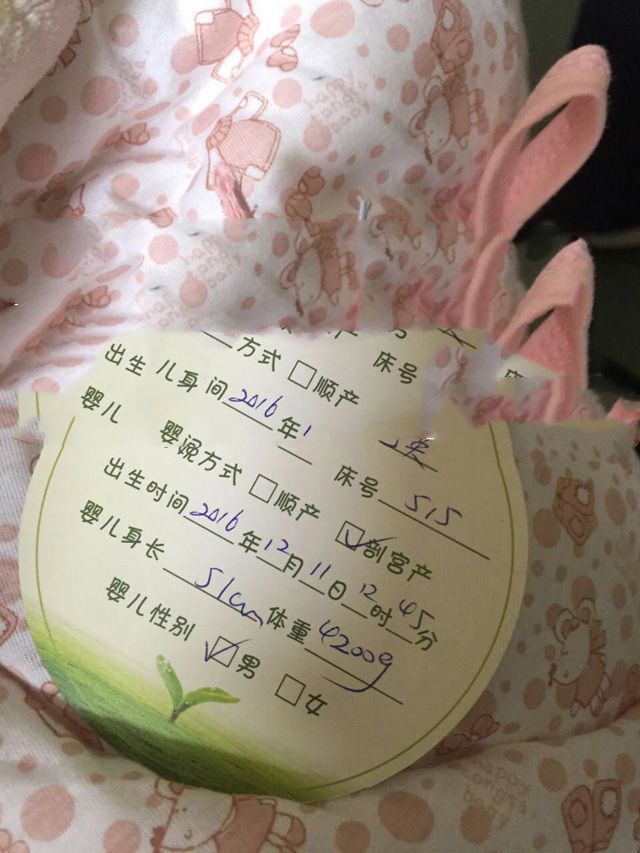 方式 □顺产 床号
出生 儿身 间 2016 年 1
婴儿 婴 方式 □顺产 床号 515
☑剖宫产
出生时间 2016 年 12 月 11 日 12 时 45 分
婴儿身长 51cm 体重 4200g
婴儿性别 ☑男 □女